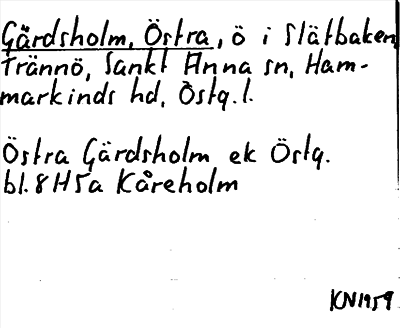 Gärdsholm, Östra, ö i Slätbaken,
Trännö, Sankt Anna sn, Ham-
markinds hd, Östg.l.
Östra Gärdsholm ek Östg.
bl. 8H5a Kåreholm
KN1959